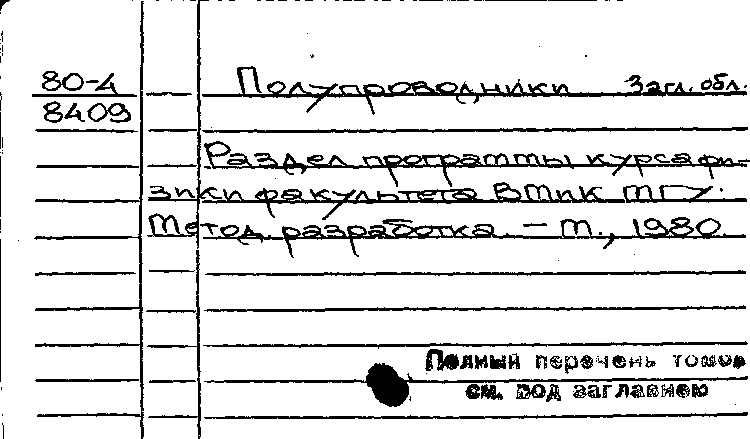 80-4 Полупроводники Загл. обл.
8409
Раздел программы курса фи-
зики факультета ВМиК МГУ.
Метод. разработка. – М., 1980.
Полный перечень томов
см. под заглавием